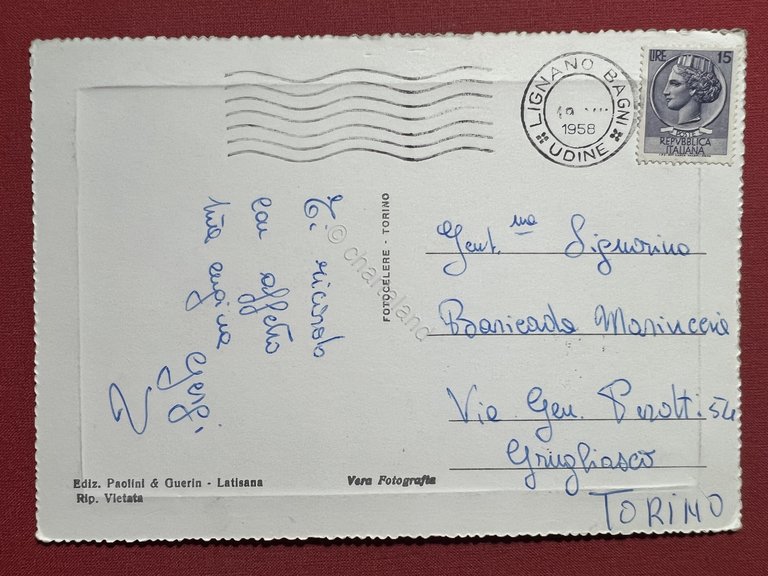 LIGNANO BAGNI
1958
UDINE
LIRE 15
POSTE
REPVBBLICA
ITALIANA
Ti ricordo
con affetto
tua cugina
FOTOCELERE - TORINO
© chartaland
Gent.ma Signorina
Baricada
Via Gen. Perotti 54
Grugliasco
TORINO
Ediz. Paolini & Guerin - Latisana
Rip. Vietata
Vera Fotografia